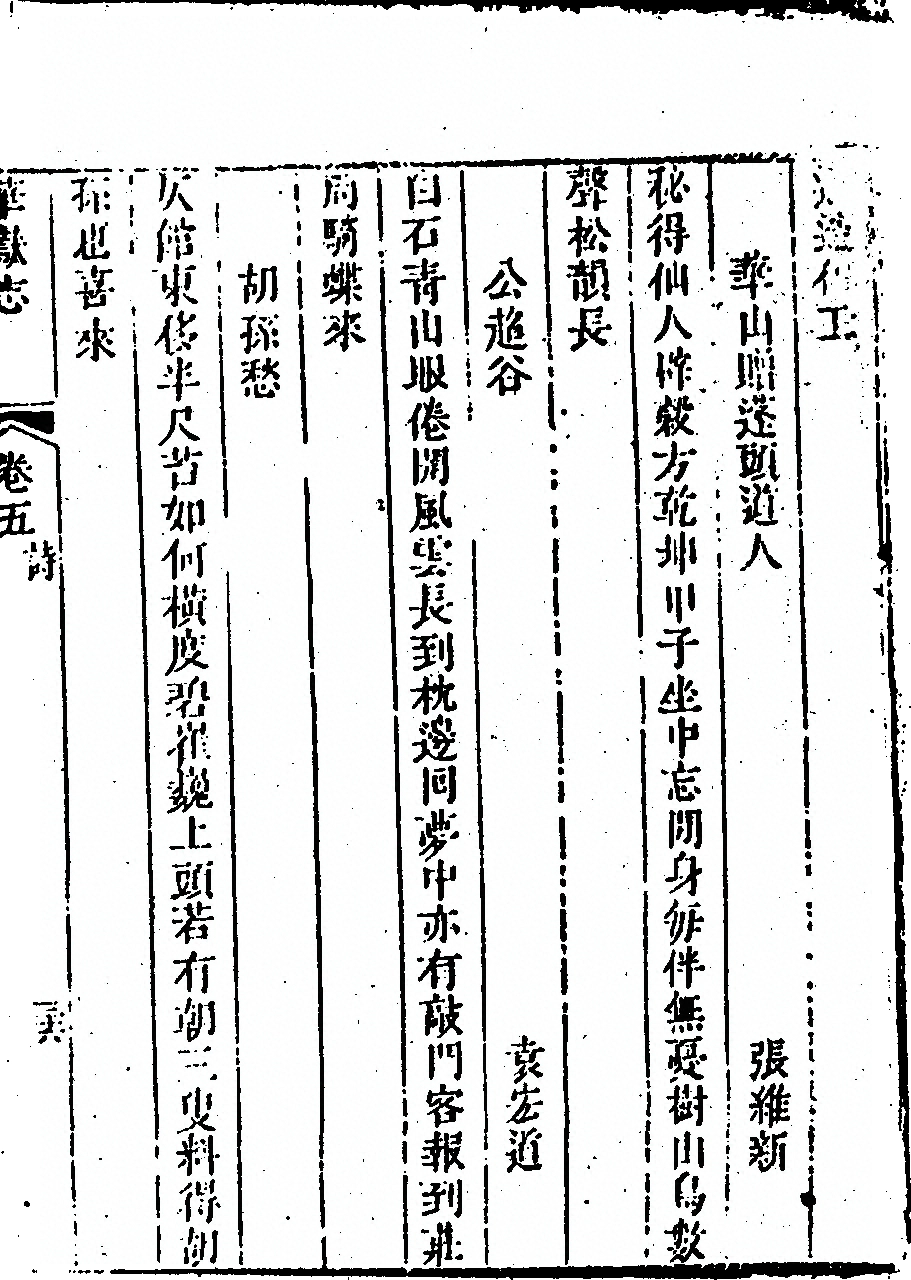 工
華山贈蓬頭道人　張維新
秘得仙人辟穀方乾坤甲子坐中忘閒身每伴無憂樹山鳥數
聲松韻長
公超谷　袁宏道
白石青山眼倦開風雲長到枕邊回夢中亦有敲門客報到莊
周騎蝶來
胡孫愁
仄館東移半尺苔如何橫度碧崔巍上頭若有朝三叟料得胡
孫也喜來
華嶽志
卷五
詩